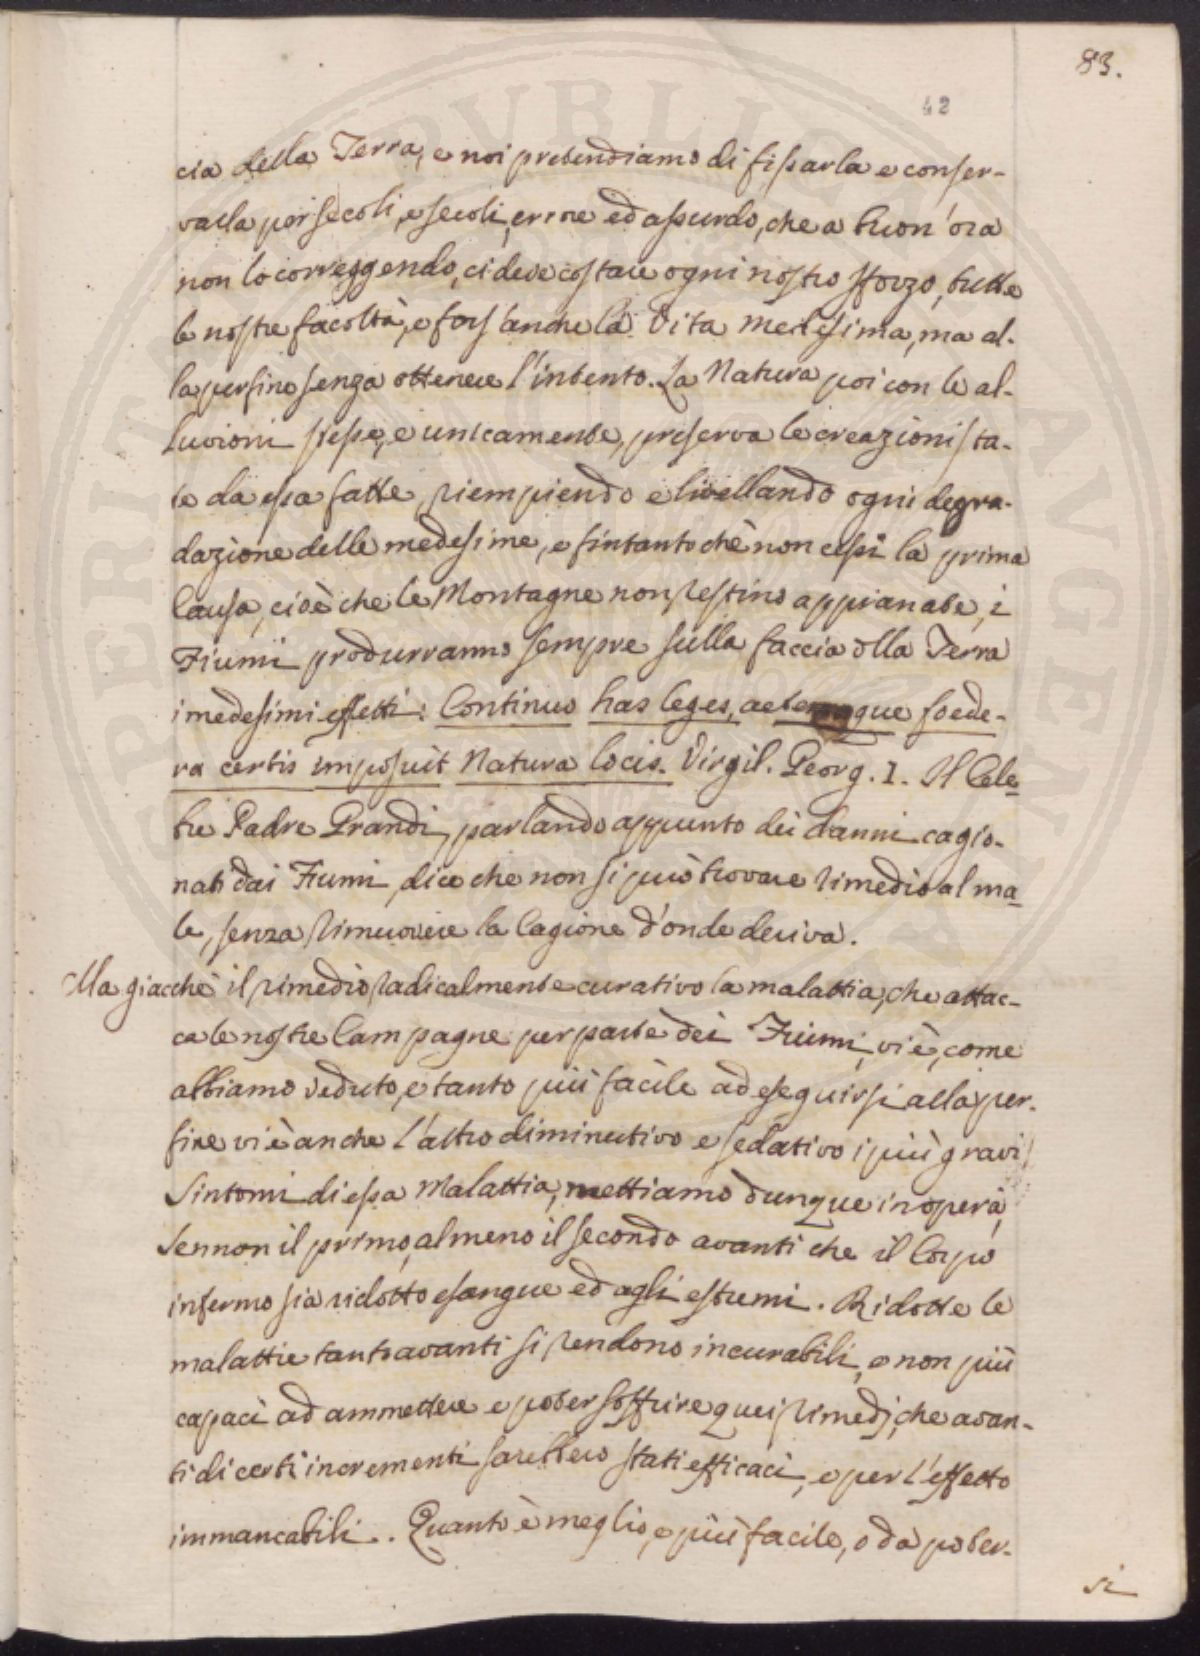 83.
42
cia della Terra, e noi pretendiamo di fissarla e conser-
varla per secoli, e secoli, errore ed assurdo, che a buon'ora
non lo correggendo, ci deve costare ogni nostro sforzo, tutte
le nostre facoltà, e fors'anche la Vita medesima, ma al-
la perfine senza ottenere l'intento. La Natura poi con le al-
luvioni stesse, e unicamente, preserva le creazioni sta-
te da essa fatte, riempiendo e livellando ogni degra-
dazione delle medesime, e fintantochè non cessi la prima
Causa, cioè che le Montagne non restino appianate, i
Fiumi produrranno sempre sulla faccia della Terra
i medesimi effetti: Continuo has leges, aeternaque foede-
ra certis imposuit Natura locis. Virgil. Georg. 1. Il Cele-
bre Padre Grandi, parlando appunto dei danni cagio-
nati dai Fiumi, dice che non si può trovare rimedio al ma-
le, senza rimuovere la Cagione d'onde deriva.
Ma giacchè il rimedio radicalmente curativo la malattia, che attac-
ca le nostre Campagne per parte dei Fiumi, vi è, come
abbiamo veduto, e tanto più facile ad eseguirsi alla per-
fine vi è anche l'altro diminutivo e sedativo i più gravi
Sintomi di essa Malattia, mettiamo dunque in opera,
Sennon il primo, almeno il secondo avanti che il Corpo
infermo sia ridotto esangue ed agli estremi. Ridotte le
malattie tanto avanti si rendono incurabili, e non più
capaci ad ammettere e poter soffrire quei rimedj, che avan-
ti di certi incrementi sarebbero stati efficaci, e per l'effetto
immancabili. Quanto è meglio, e più facile, o da poter-
si
PERITAS PUBLICA AUGENDA